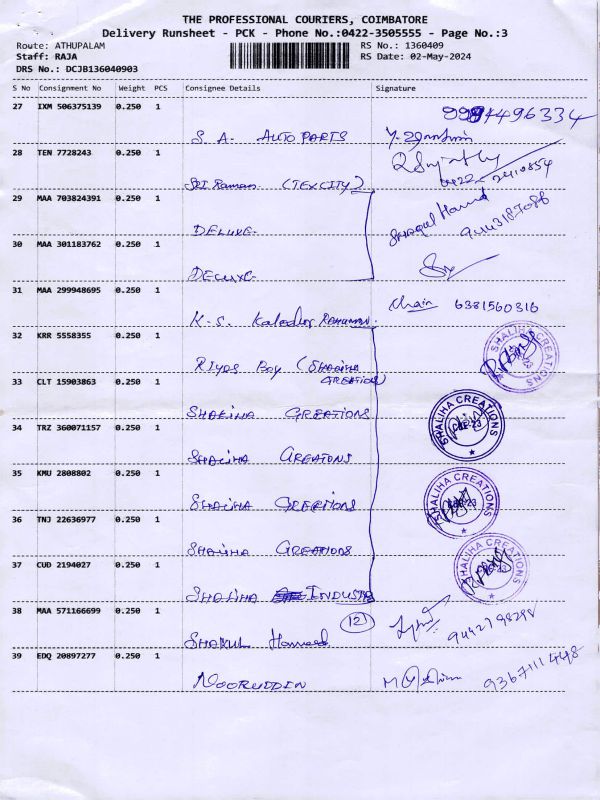 THE PROFESSIONAL COURIERS, COIMBATORE
Delivery Runsheet - PCK - Phone No.:0422-3505555 - Page No.:3
Route: ATHUPALAM
RS No.: 1360409
Staff: RAJA
RS Date: 02-May-2024
DRS No.: DCJB136040903
S No Consignment No Weight PCS Consignee Details Signature
27 IXM 506375139 0.250 1
S. A. AUTO PARTS
28 TEN 7728243 0.250 1
SRI Raman (TEXCITY)
29 MAA 703824391 0.250 1
DELUXE. 9443187086
30 MAA 301183762 0.250 1
DELUXE.
31 MAA 299948695 0.250 1
K. S. Rahuman. 6381560316
32 KRR 5558355 0.250 1
RIYAS Boy (SHALIHA CREATION) SHALIHA CREATIONS
33 CLT 15903863 0.250 1
SHALIHA CREATIONS SHALIHA CREATIONS
34 TRZ 360071157 0.250 1
SHALIHA CREATIONS
35 KMU 2808802 0.250 1
SHALIHA CREATIONS SHALIHA CREATIONS
36 TNJ 22636977 0.250 1
SHALIHA CREATIONS SHALIHA CREATIONS
37 CUD 2194027 0.250 1
SHALIHA INDUSTR
38 MAA 571166699 0.250 1 12
SHAKUL Hameed
39 EDQ 20897277 0.250 1
NOORUDDIN 9367111448